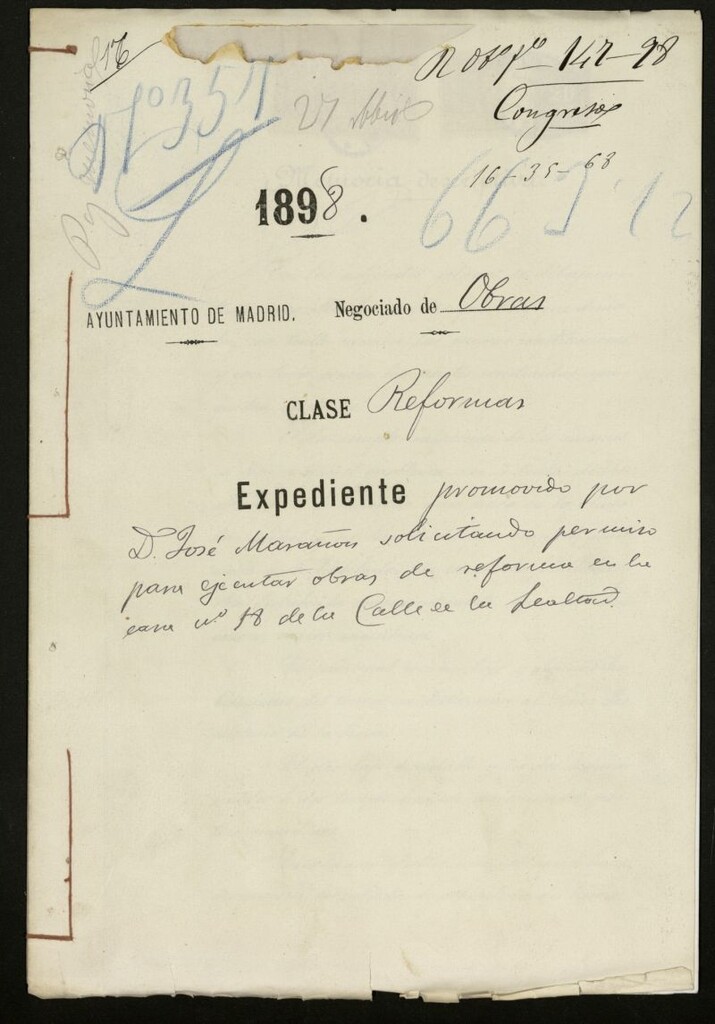 16
Nº 351
27 Abril
147-98
Congreso
16-35-68
1898.
AYUNTAMIENTO DE MADRID. Negociado de Obras
CLASE Reformas
Expediente promovido por
D. José Marañon solicitando permiso
para ejecutar obras de reforma en la
casa nº 18 de la Calle de la Lealtad.